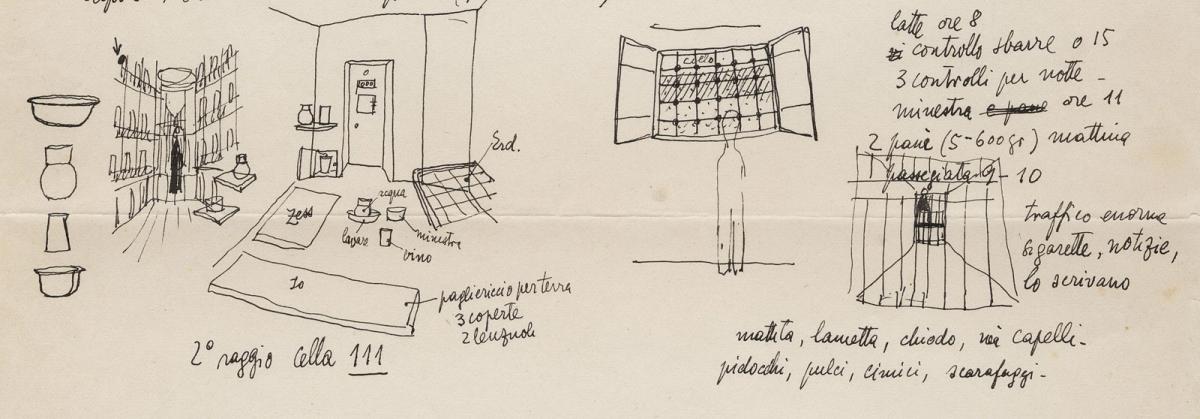 latte ore 8
controllo sbarre o 15
3 controlli per notte -
minestra e pane ore 11
2 pane (5-600gr) mattina
passegiata 9 - 10
traffico enorme
sigarette, notizie,
lo scrivano
cielo
Erd.
Zess
acqua
lavare
minestra
vino
Io
pagliericcio per terra
3 coperte
2 lenzuola
2° raggio cella 111
matita, lametta, chiodo, capelli -
pidocchi, pulci, cimici, scarafaggi -